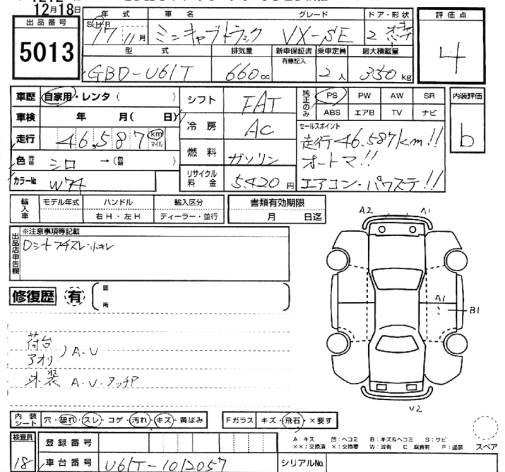 12月18日
出品番号 年式 車名 グレード ドア・形状 評価点
5013 H17年11月 ミニキャブトラック VX-SE 2 4
型式 排気量 新車保証書 乗車定員 最大積載量
有無記入
GBD-U61T 660cc 2人 350kg
車歴 自家用・レンタ( ) シフト FAT 純正のみ PS PW AW SR 内装評価
車検 年 月( 日) 冷房 AC ABS エアB TV ナビ b
走行 46,587 km マイル セールスポイント
走行46,587km!!
燃料 ガソリン オートマ!!
色 シロ →( ) リサイクル料金 5,420円 エアコン・パワステ!!
カラーNo W74
輸入車 モデル年式 ハンドル 輸入区分 書類有効期限
右H・左H ディーラー・並行 月 日迄
出品店申告欄 ※注意事項等記載
修復歴 有
箇所
荷台
アオリ )A・U
外装 A・U・アッチP
A2 A1
A1 B1
U2
内装シート 穴・破れ・スレ・コゲ・汚れ・キズ・黄ばみ Fガラス キズ・飛石・×要す
検査員 登録番号 スペア
18 車台番号 U61T-1012057 シリアルNo.